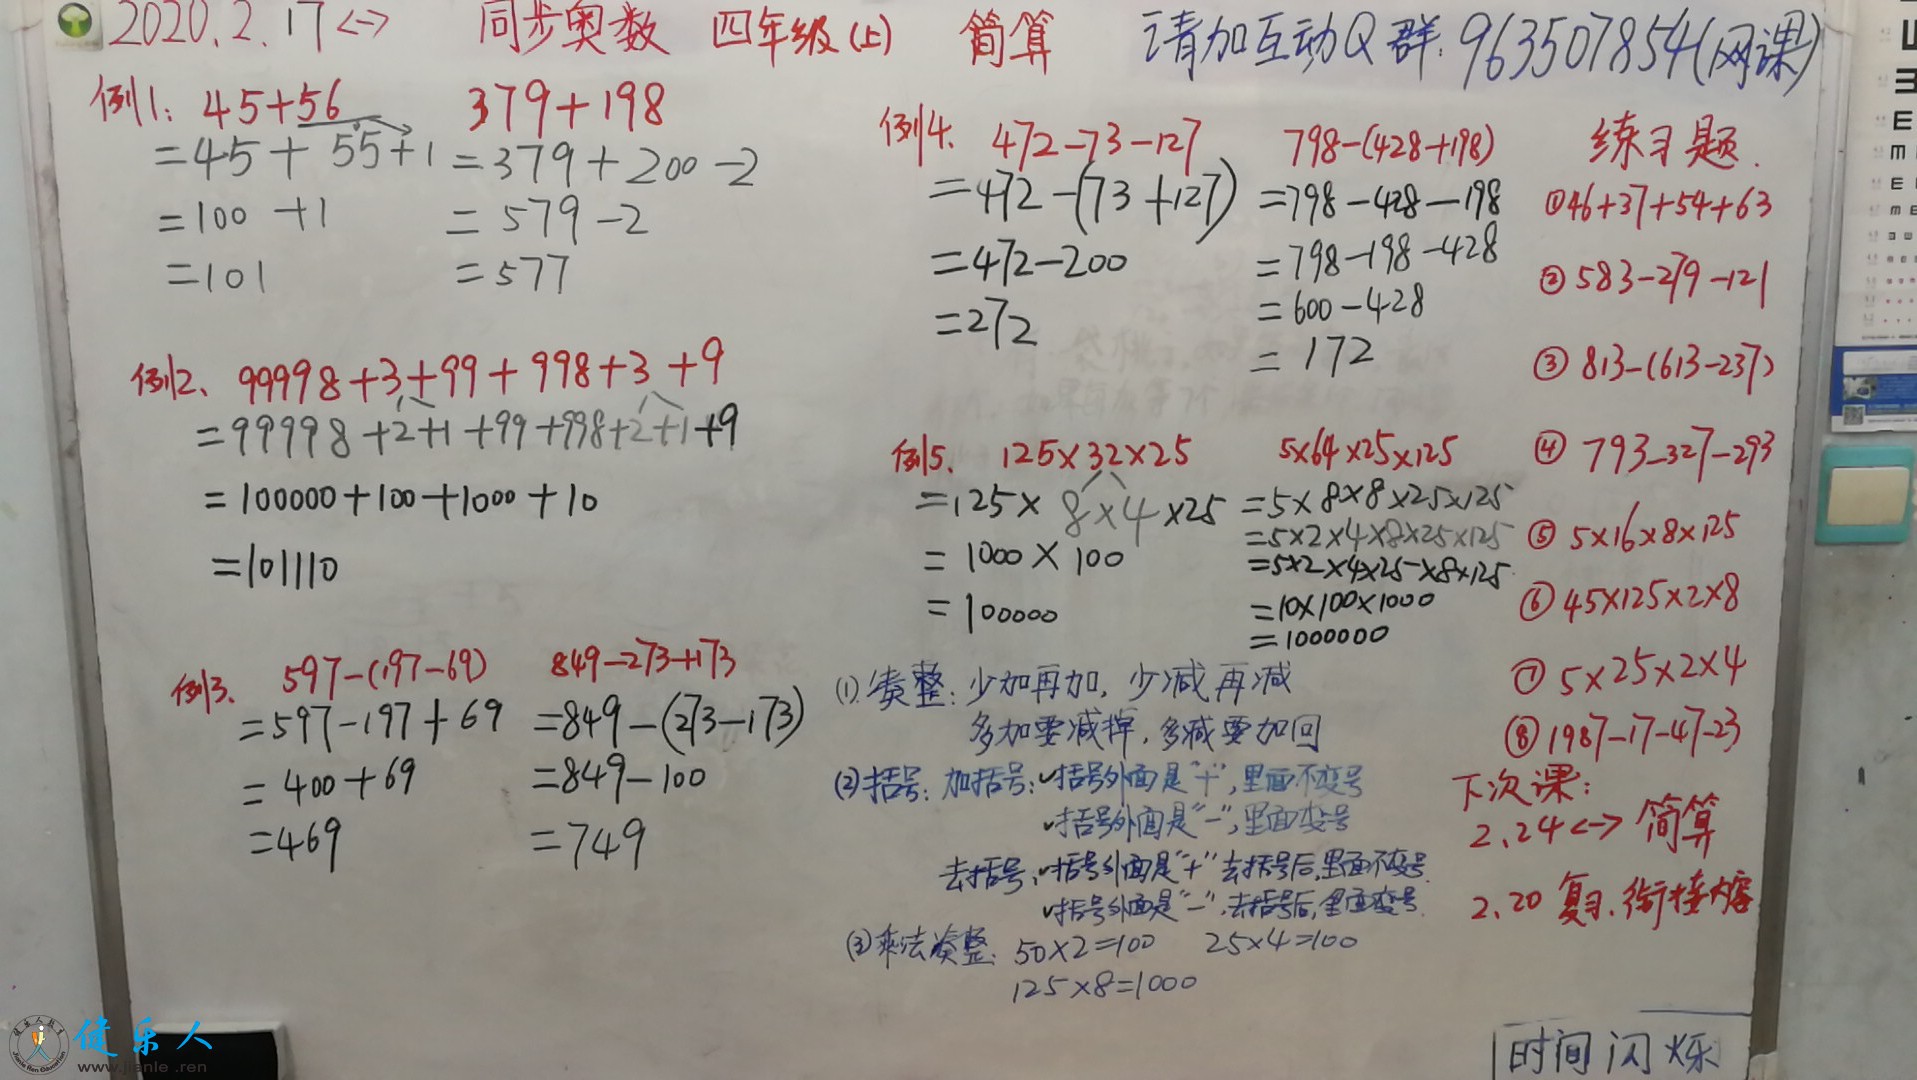 2020.2.17<-> 同步奥数 四年级(上) 简算 请加互动Q群:963507854(网课)
例1: 45+56
=45+55+1
=100+1
=101
379+198
=379+200-2
=579-2
=577
例2、99998+3+99+998+3+9
=99998+2+1+99+998+2+1+9
=100000+100+1000+10
=101110
例3、597-(197-69)
=597-197+69
=400+69
=469
849-273+173
=849-(273-173)
=849-100
=749
例4、472-73-127
=472-(73+127)
=472-200
=272
798-(428+198)
=798-428-198
=798-198-428
=600-428
=172
例5、125×32×25
=125×8×4×25
=1000×100
=100000
5×64×25×125
=5×8×8×25×125
=5×2×4×8×25×125
=5×2×4×25×8×125
=10×100×1000
=1000000
(1)凑整:少加再加,少减再减
多加要减掉,多减要加回
(2)括号:加括号:✓括号外面是"+",里面不变号
✓括号外面是"-",里面变号
去括号:✓括号外面是"+"去括号后,里面不变号.
✓括号外面是"-",去括号后,里面变号.
(3)乘法凑整:50×2=100 25×4=100
125×8=1000
练习题.
①46+37+54+63
②583-279-121
③813-(613-237)
④793-327-293
⑤5×16×8×125
⑥45×125×2×8
⑦5×25×2×4
⑧1987-17-47-23
下次课:
2.24<->简算
2.20 复习.衔接内容
时间闪烁
健乐人
www.jianle.ren